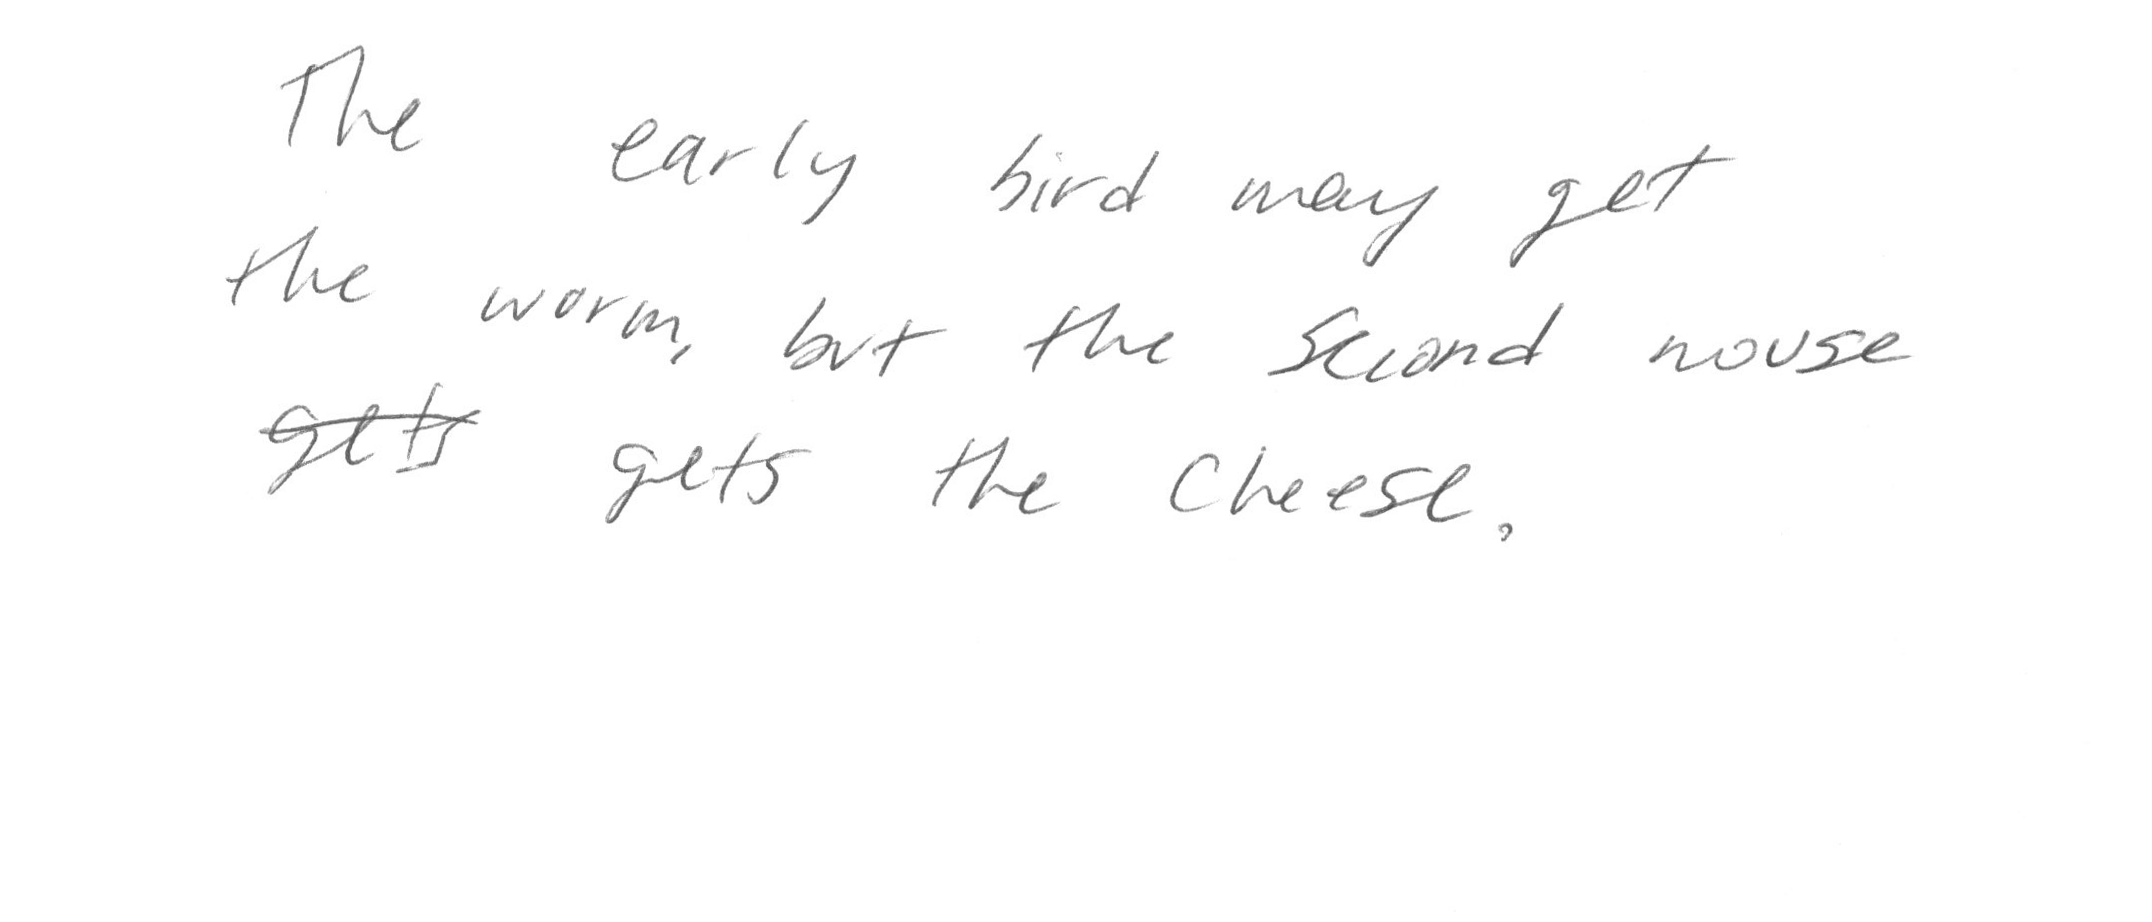 The early bird may get
the worm, but the second mouse
gets gets the cheese.